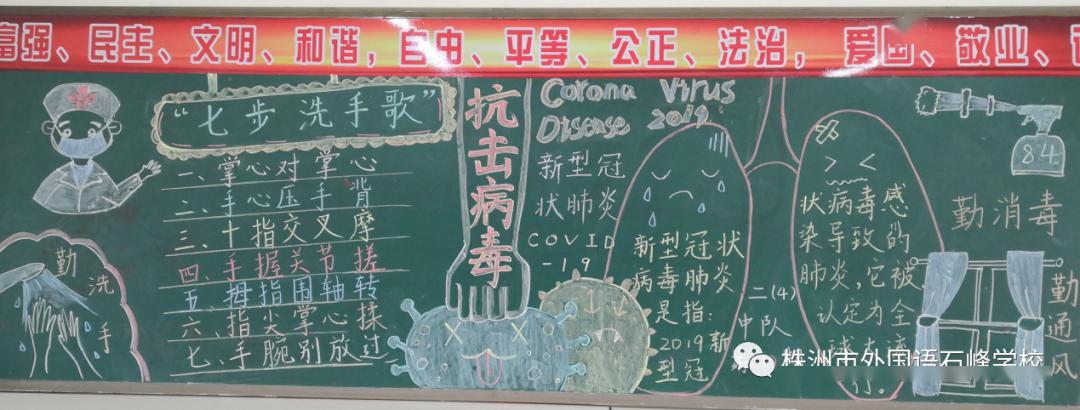 富强、民主、文明、和谐，自由、平等、公正、法治，爱国、敬业、
“七步洗手歌”
一、掌心对掌心
二、手心压手背
三、十指交叉摩
四、手握关节搓
五、拇指围轴转
六、指尖掌心揉
七、手腕别放过
勤洗手
抗击病毒
Corona Virus
Disease 2019
新型冠
状肺炎
COVID
-19
新型冠状
病毒肺炎
是指：
2019新
型冠
状病毒感
染导致的
肺炎，它被
认定为全
球大流
行。
二(4)
中队
84
勤消毒
勤通风
株洲市外国语石峰学校